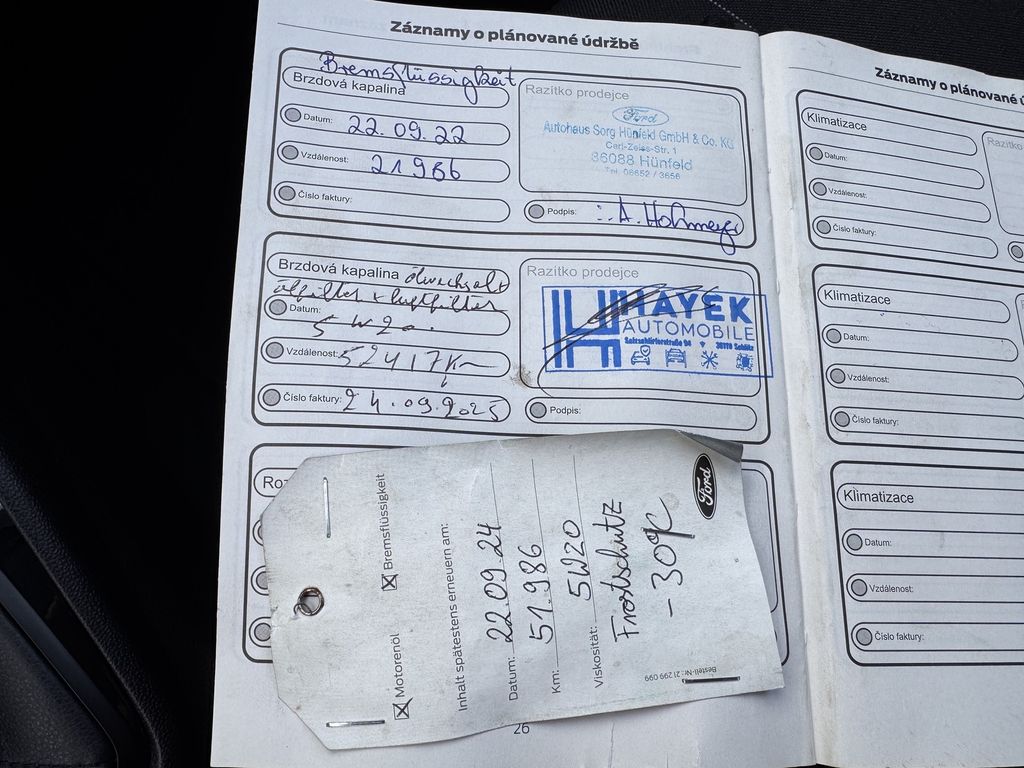 Záznamy o plánované údržbě
Bremsflüssigkeit
Brzdová kapalina
Datum: 22.09.22
Vzdálenost: 21986
Číslo faktury:
Razítko prodejce
Ford
Autohaus Sorg Hünfeld GmbH & Co. KG
Carl-Zeiss-Str. 1
36088 Hünfeld
Tel. 06652 / 3656
Podpis:
Brzdová kapalina
ölfilter + luftfilter
Datum: 5W20.
Vzdálenost: 52417 Km
Číslo faktury: 24.09.2025
Razítko prodejce
HAYEK
AUTOMOBILE
Podpis:
Roz
Ford
Motorenöl
Bremsflüssigkeit
Inhalt spätestens erneuern am:
Datum: 22.09.24
Km: 51.986
Viskosität: 5W20
Frostschutz
-30°C
Bestell-Nr.: 21 299 099
26
Záznamy o plánované ú
Klimatizace
Datum:
Vzdálenost:
Číslo faktury:
Razítko
Klimatizace
Datum:
Vzdálenost:
Číslo faktury:
Klimatizace
Datum:
Vzdálenost:
Číslo faktury: